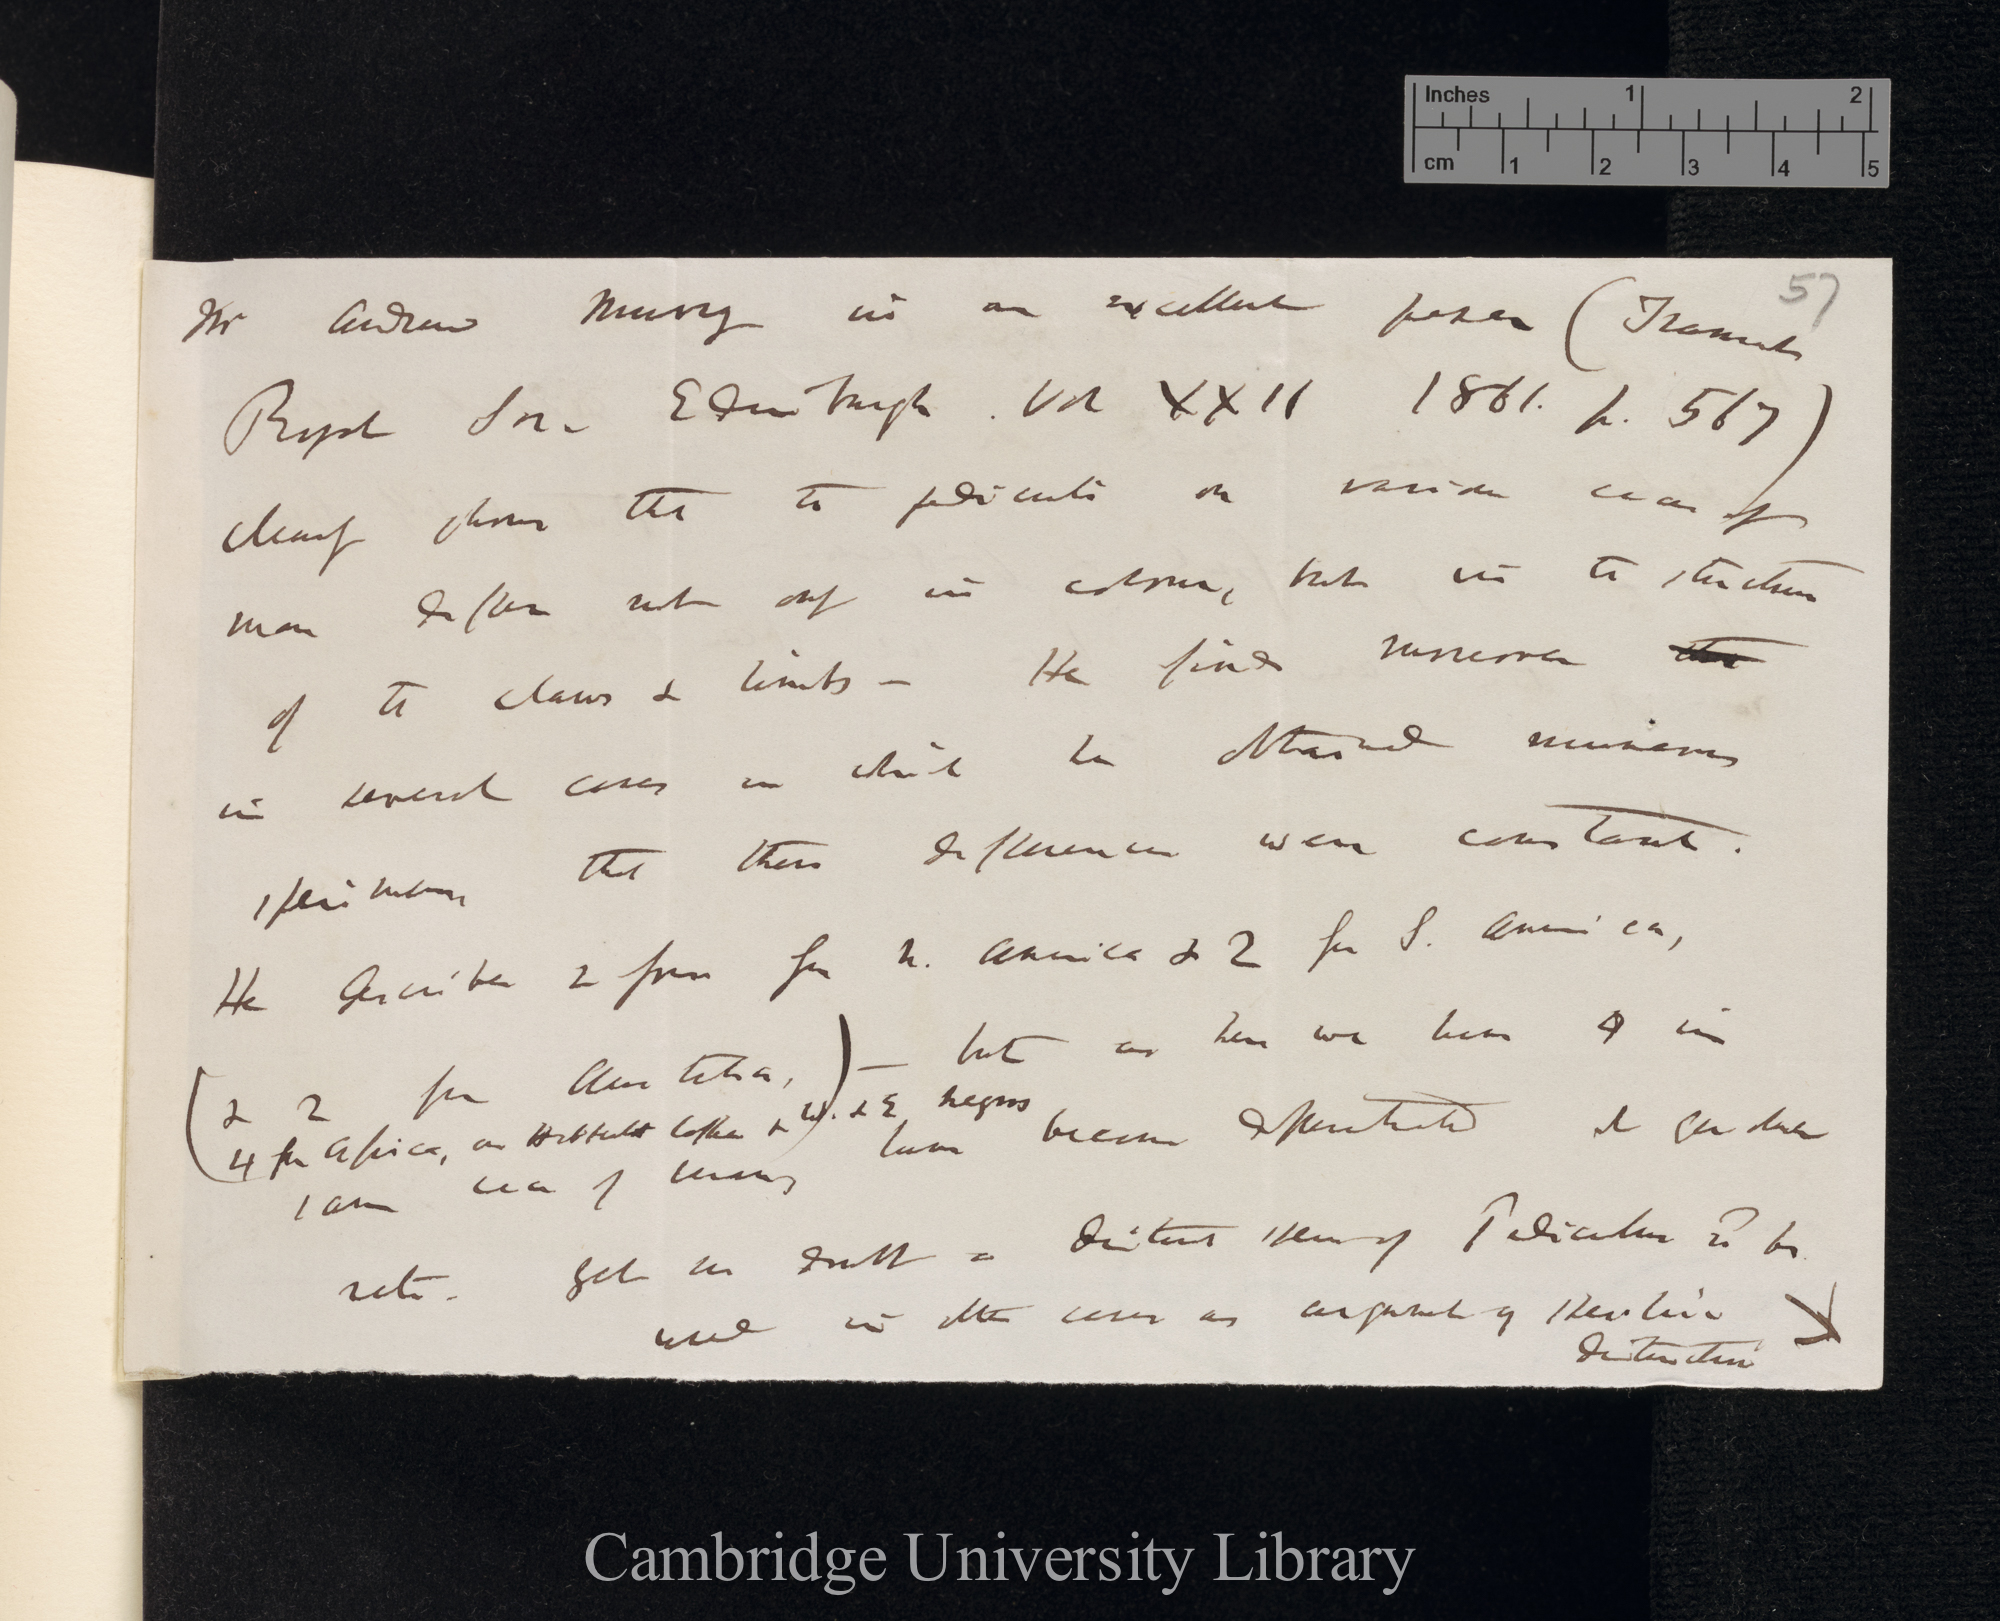 Inches 1 2
cm 1 2 3 4 5
57
Mr Andrew Murray in an excellent paper (Transacts
Royal Soc. Edinburgh. Vol XXII 1861. p. 567)
clearly shows that the pediculi on various races of
man differ not only in colour, but in the structure
of the claws & limbs — He finds moreover
in several cases in which he obtained numerous
specimens that these differences were constant.
He describes 2 from from N. America & 2 from S. America,
(& 2 from Australia,) — but as here we have 4 in
4 from Africa, on Hottentot Caffre & W. & E negros
same race of many have become differentiated & gardener
note. yet no doubt a distinct species of Pediculus to be
used in other cases as argument of specific
distinction
Cambridge University Library